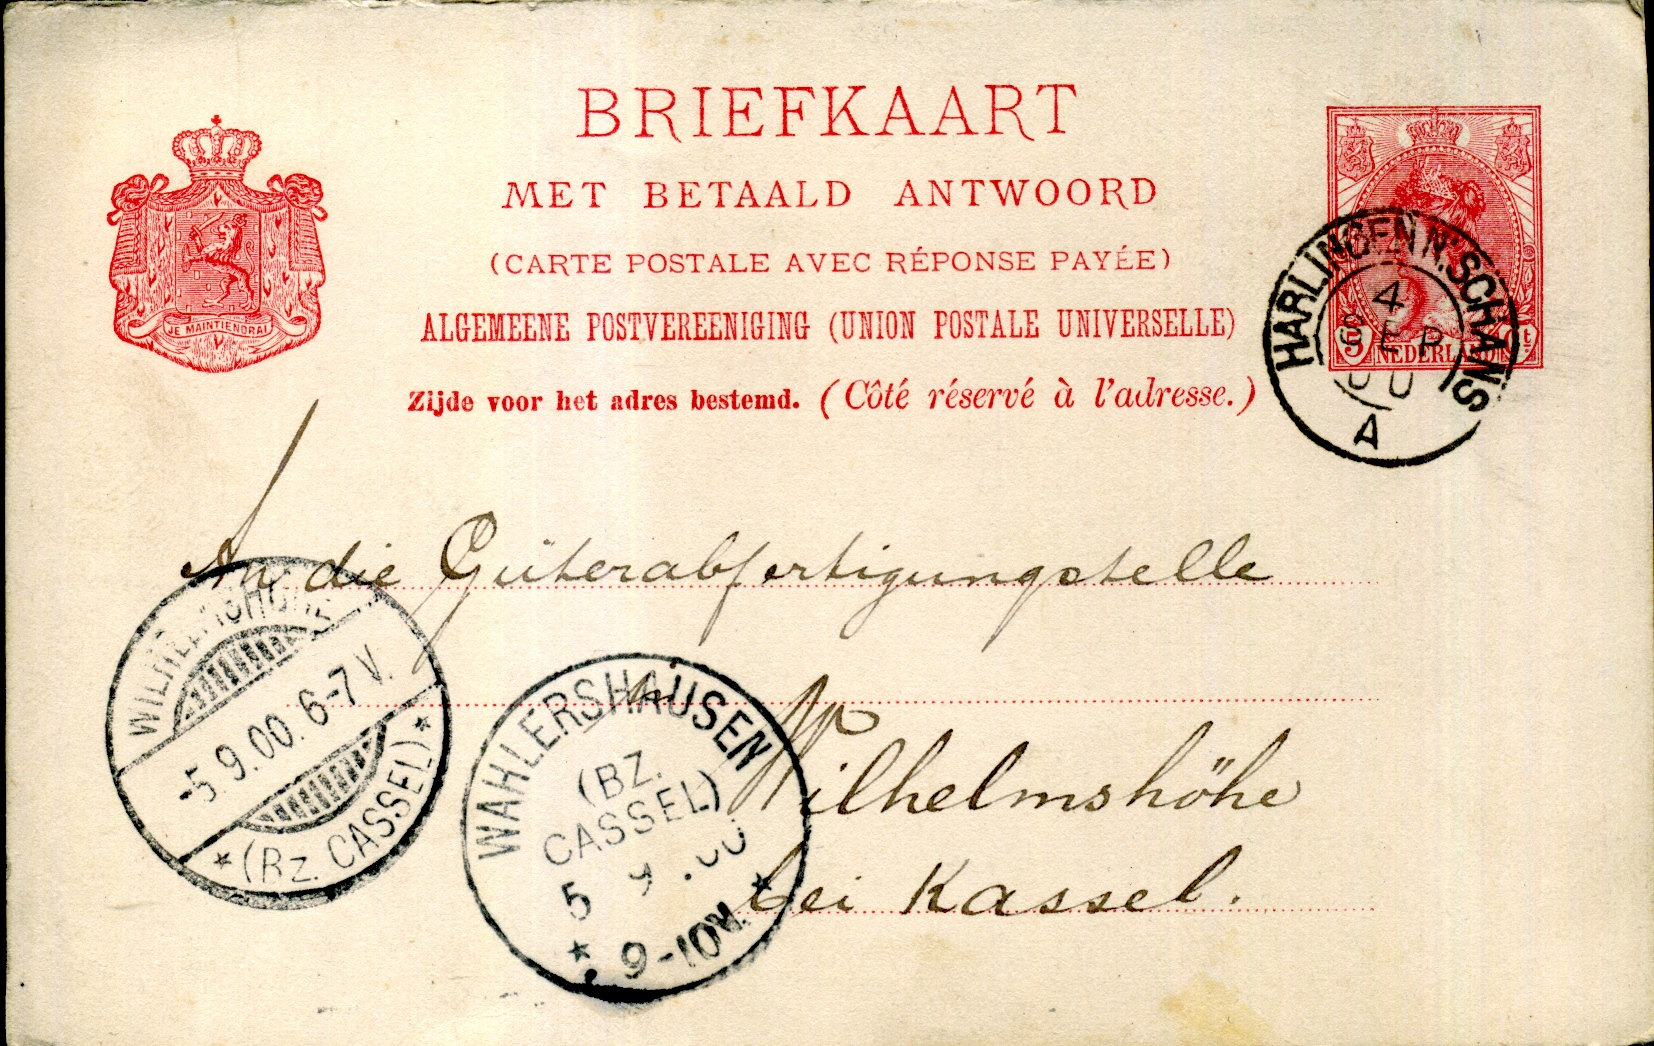 BRIEFKAART
MET BETAALD ANTWOORD
(CARTE POSTALE AVEC RÉPONSE PAYÉE)
ALGEMEENE POSTVEREENIGING (UNION POSTALE UNIVERSELLE)
Zijde voor het adres bestemd. (Côté réservé à l'adresse.)
JE MAINTIENDRAI
5 ct
NEDERLAND
HARLINGEN N. SCHANS
4
SEP
00
A
An die Güterabfertigungstelle
in
Wilhelmshöhe
bei Kassel.
WILHELMSHÖHE
-5.9.00. 6-7 V.
* (Bz. CASSEL) *
WAHLERSHAUSEN
(BZ.
CASSEL)
5 9 .00
* 9-10V. *